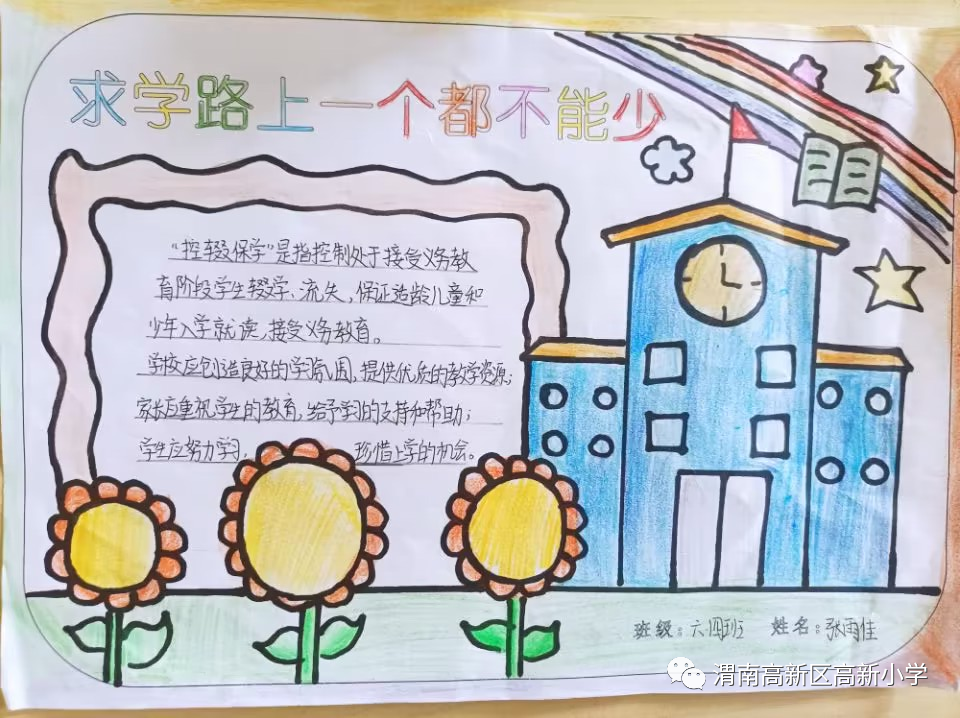 求学路上一个都不能少
“控辍保学”是指控制处于接受义务教
育阶段学生辍学、流失,保证适龄儿童和
少年入学就读,接受义务教育。
学校应创造良好的学习氛围,提供优质的教学资源;
家长应重视学生的教育,给予学习的支持和帮助;
学生应努力学习, 珍惜上学的机会。
班级:六四班 姓名:张雨佳
渭南高新区高新小学